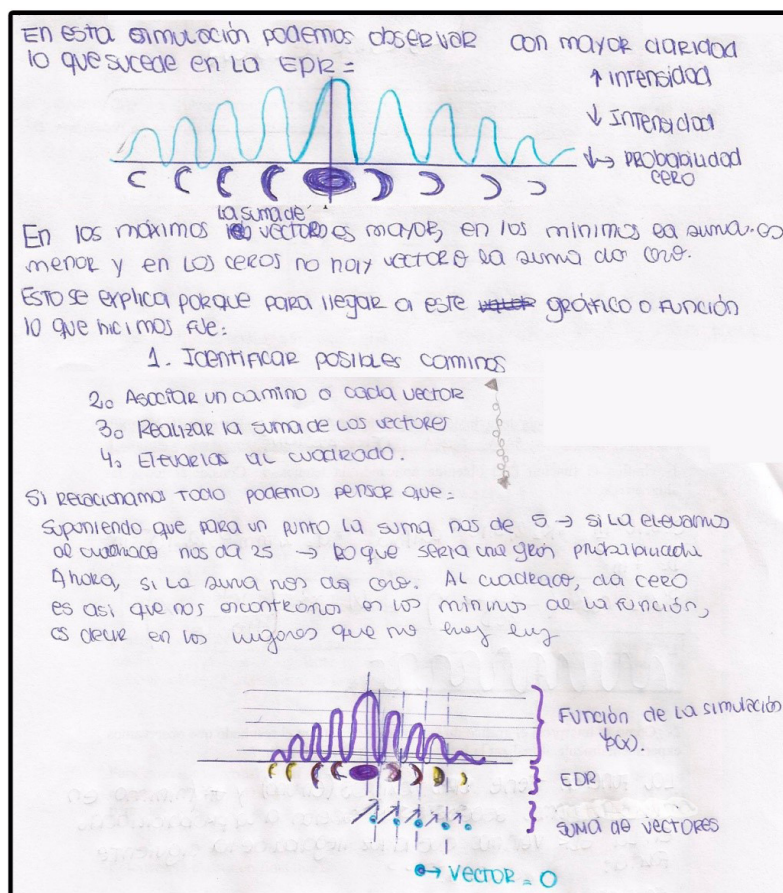 En esta simulación podemos observar con mayor claridad
lo que sucede en la EDR =
↑ intensidad
↓ Intensidad
↓→ PROBABILIDAD
CERO
la suma de
En los máximos vectores es mayor, en los mínimos la suma es
menor y en los ceros no hay vector o la suma da cero.
Esto se explica porque para llegar a este gráfico o función
lo que hicimos fue:
1. Identificar posibles caminos
2. Asociar un camino a cada vector
3. Realizar la suma de los vectores
4. Elevarlas al cuadrado.
Si relacionamos todo podemos pensar que:
Suponiendo que para un punto la suma nos de 5 → si la elevamos
al cuadrado nos da 25 → lo que sería una gran probabilidad
Ahora, si la suma nos da cero. Al cuadrado, da cero
es asi que nos encontramos en los mínimos de la función,
es decir en los lugares que no hay luz
Función de la simulación
P(x).
EDR
suma de vectores
→ vector = 0